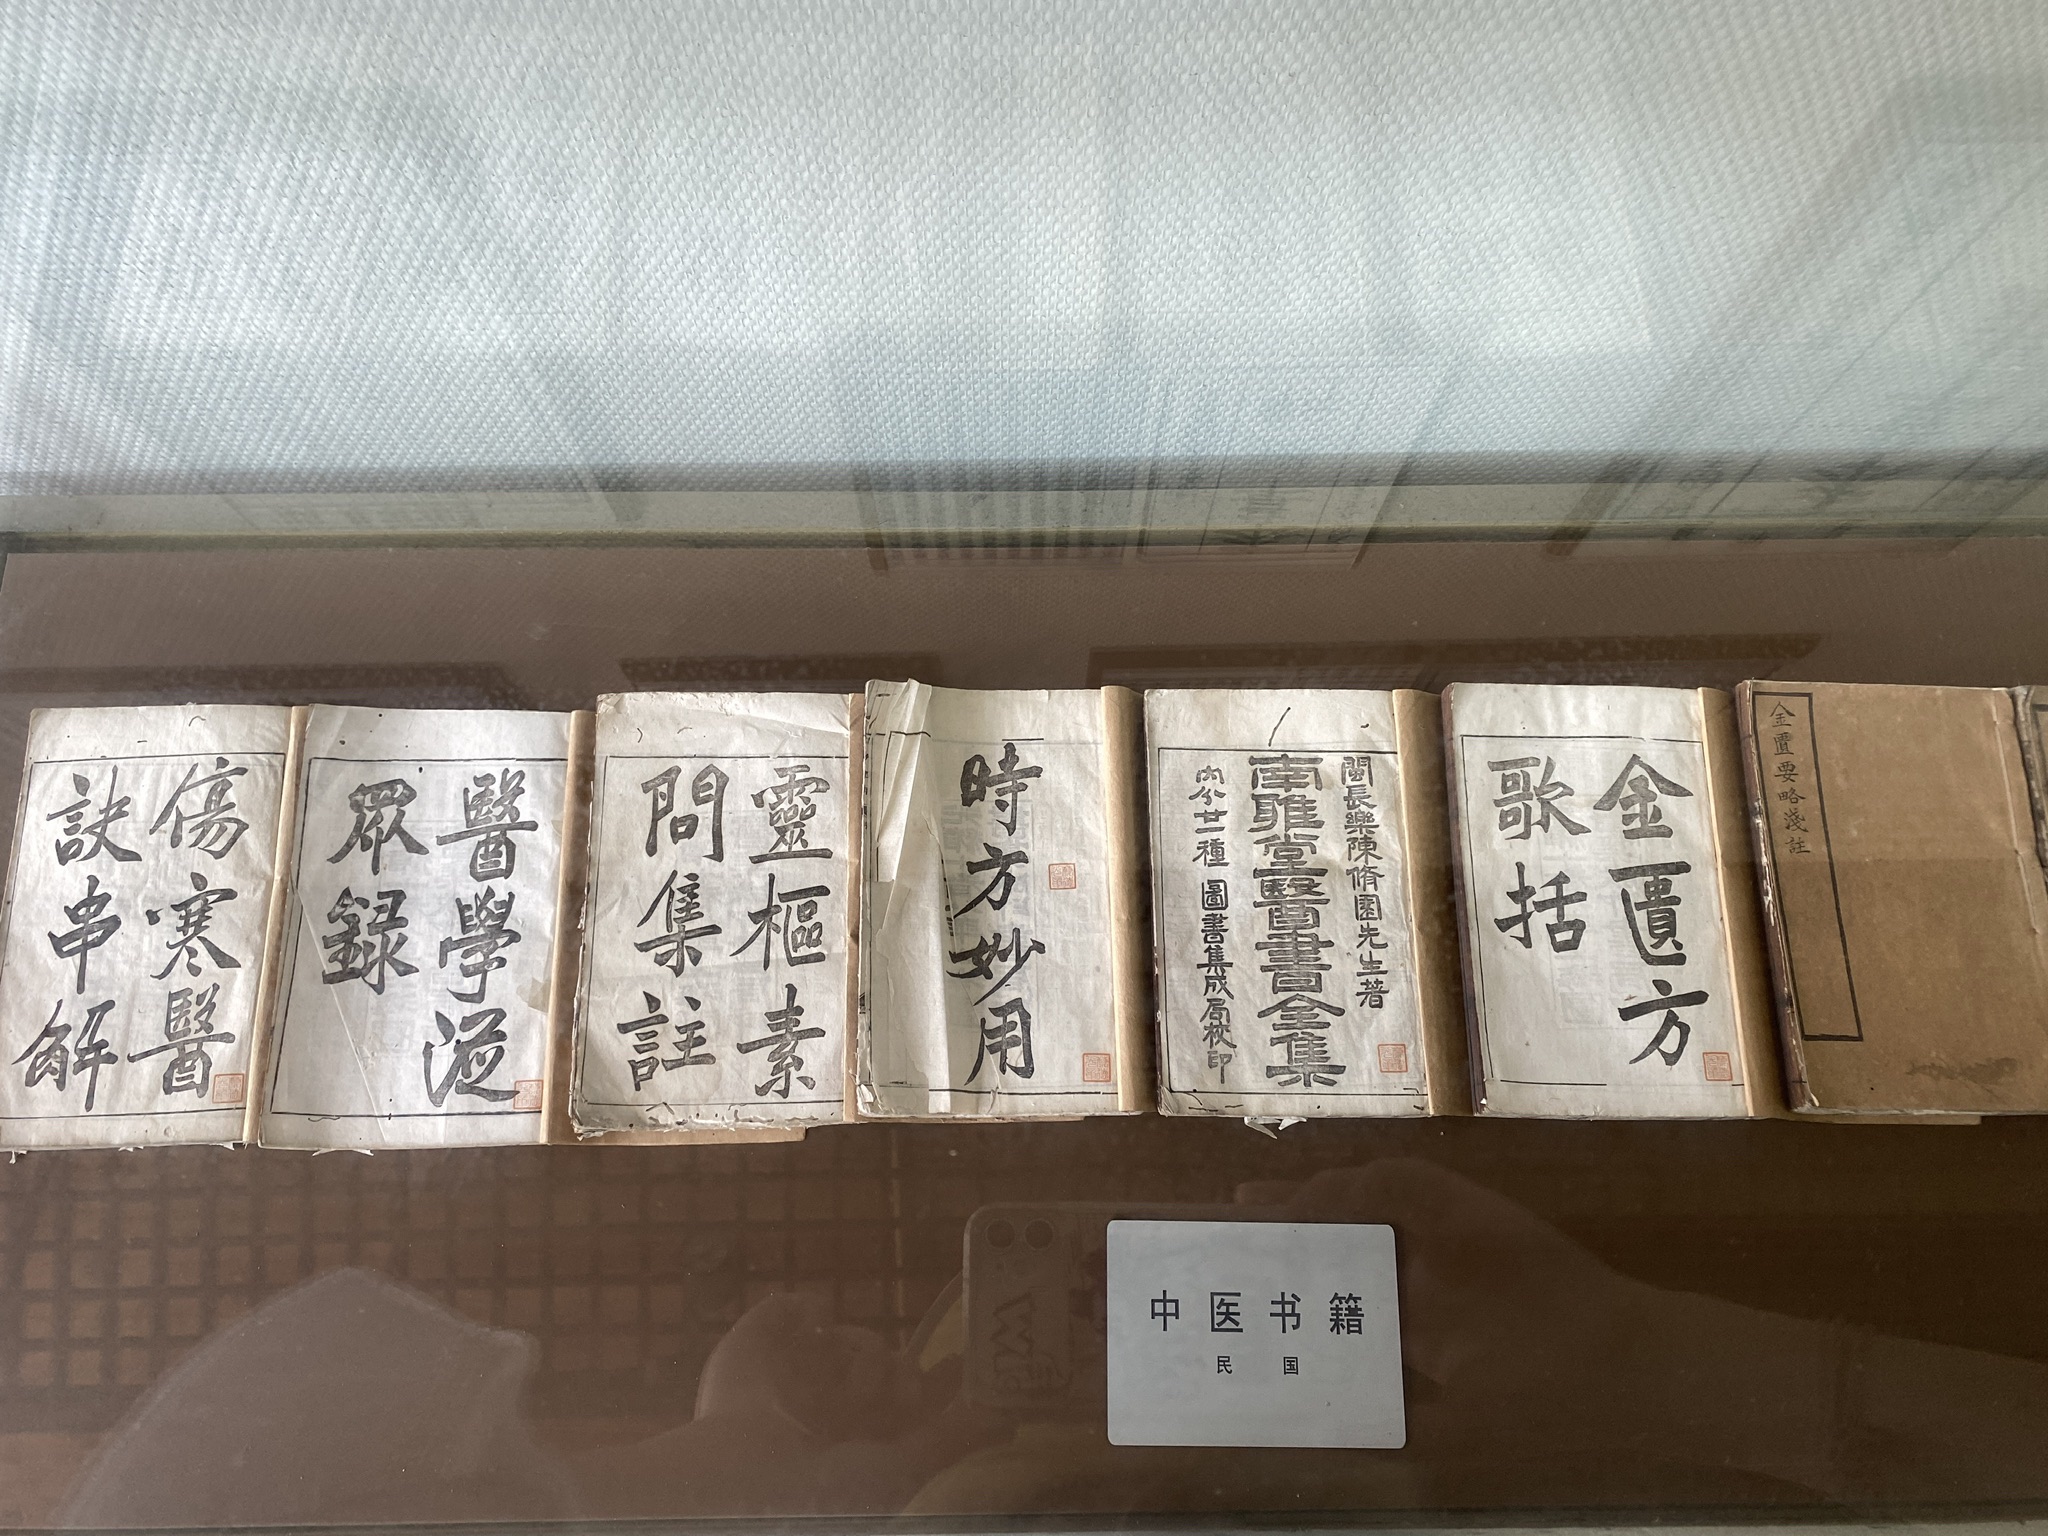 傷寒醫
訣串解
醫學從
眾録
靈樞素
問集註
時方妙用
閩長樂陳脩園先生著
南雅堂醫書全集
內分廿一種 圖書集成局校印
金匱方
歌括
金匱要略淺註
中医书籍
民国